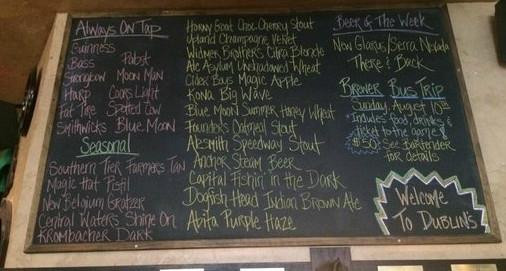 Always On Tap
Guinness
Bass Pabst
Strongbow Moon Man
Harp Coors Light
Fat Tire Spotted Cow
Smithwicks Blue Moon
Seasonal
Southern Tier Farmers Tan
Magic Hat Pistil
New Belgium
Central Waters Shine On
Krombacher Dark
Horny Goat Choc Cherry Stout
Upland Champagne Velvet
Widmer Brothers Citra Blonde
Ale Asylum Unshadowed Wheat
Cider Boys Magic Apple
Kona Big Wave
Blue Moon Summer Honey Wheat
Founders Oatmeal Stout
Alesmith Speedway Stout
Anchor Steam Beer
Capital Fishin' in the Dark
Dogfish Head Indian Brown Ale
Abita Purple Haze
Beer of The Week
New Glarus/Sierra Nevada
There & Back
Brewer Bus Trip
Sunday, August 10th
*Includes food, drinks &
ticket to the game*
$50 See Bartender
for details
Welcome
To Dublin's